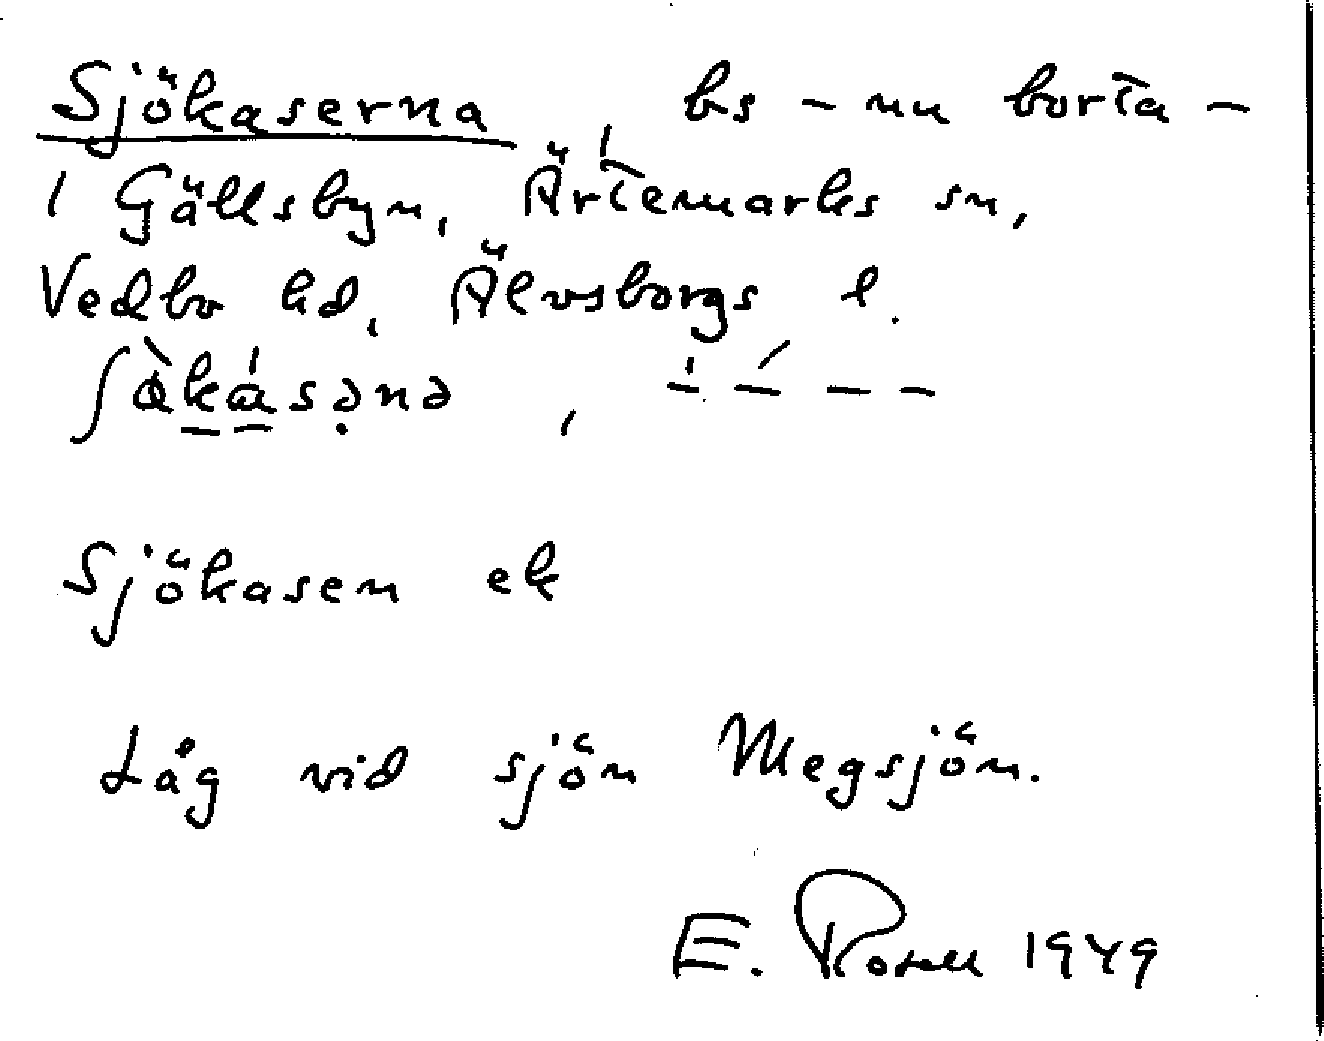 Sjökaserna bs – nu borta –
i Gällsbyn, Ärtemarks sn,
Vedbo hd, Älvsborgs l.
Sjökasen ek
Låg vid sjön Megsjön.
E. Rosell 1949